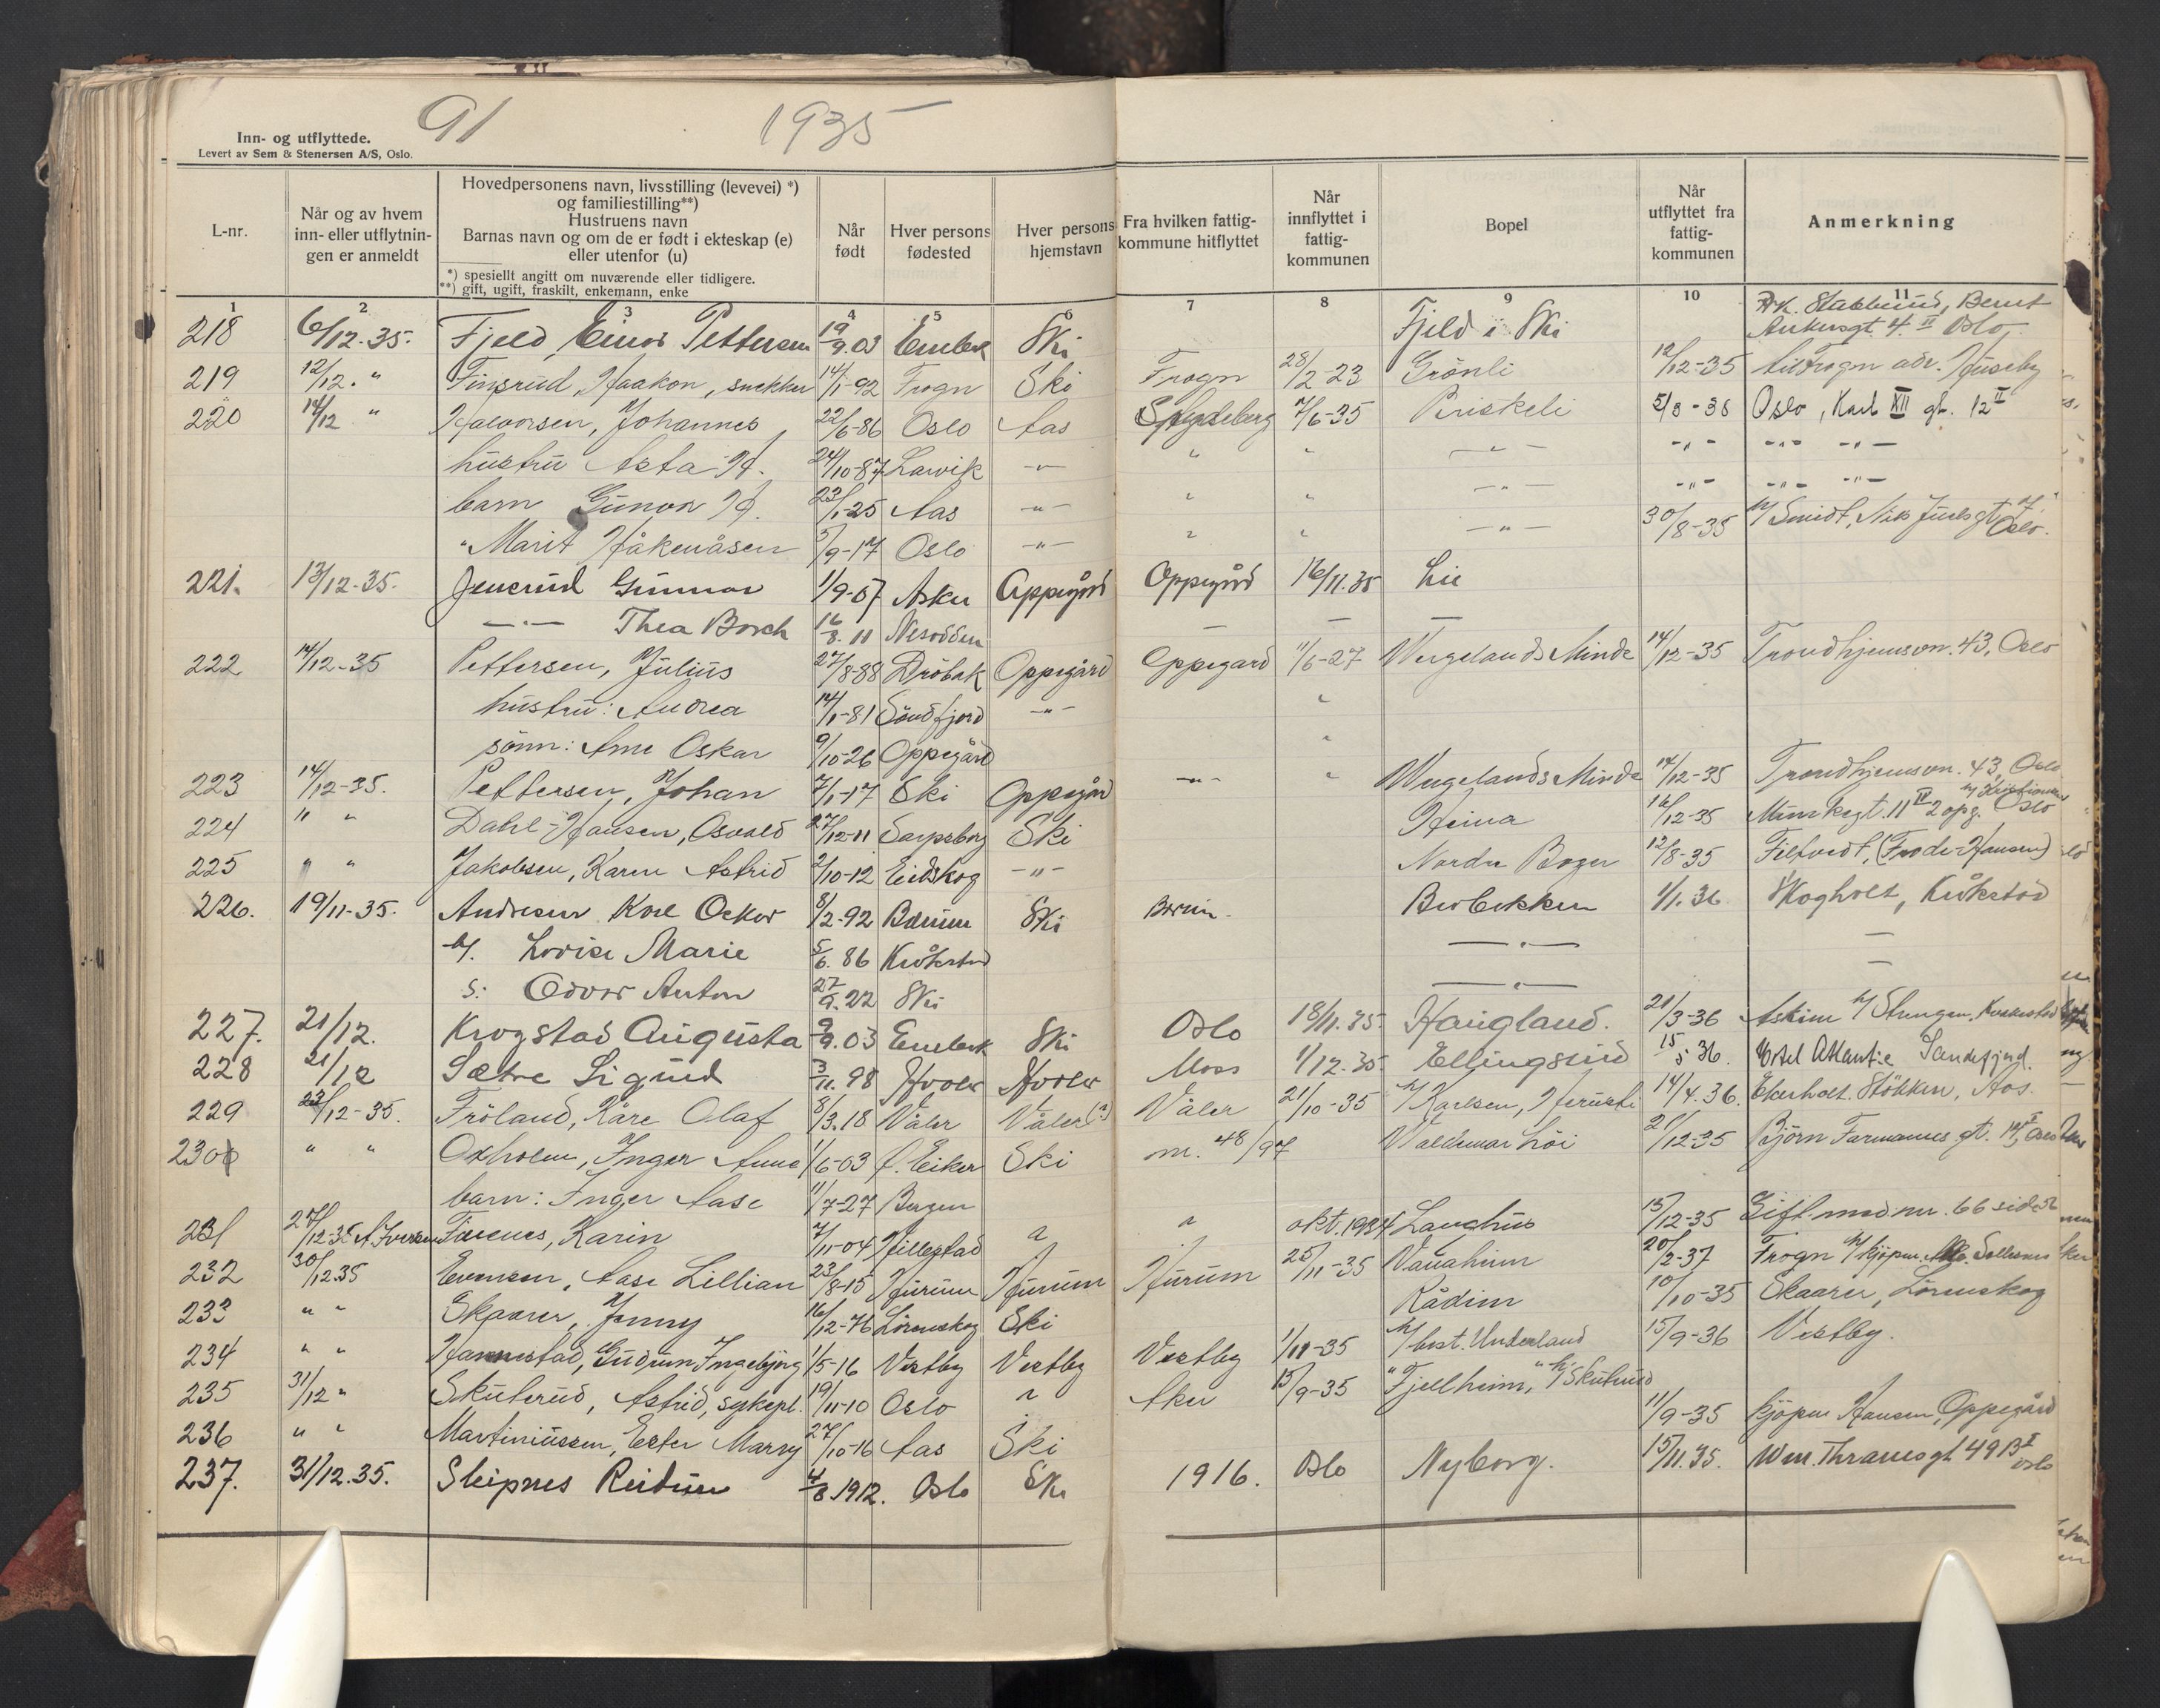 91 1935
Inn- og utflyttede.
Levert av Sem & Stenersen A/S, Oslo.
L-nr.
Når og av hvem inn- eller utflytnin-gen er anmeldt
Hovedpersonens navn, livsstilling (levevei) *)
og familiestilling**)
Hustruens navn
Barnas navn og om de er født i ekteskap (e)
eller utenfor (u)
*) spesiellt angitt om nuværende eller tidligere.
**) gift, ugift, fraskilt, enkemann, enke
Når født
Hver persons fødested
Hver persons hjemstavn
Fra hvilken fattig-kommune hitflyttet
Når innflyttet i fattig-kommunen
Bopel
Når utflyttet fra fattig-kommunen
Anmerkning
1 2 3 4 5 6 7 8 9 10 11
218 6/12-35. Fjeld Einar Pettersen 19/9.03 Enebak Ski Fjeld i Ski Oslo
219 12/12. " Finsrud, Haakon, snekker 14/1-92 Frogn Ski Frogn 28/2-23 Grönli 12/12-35 til Frogn adr. Huseby
220 14/12 " Halvorsen, Johannes, 22/6-86 Oslo Aas Spydeberg 7/6-35 Briskeli 5/8-35 Oslo, Karl XII gt. 12 II
hustru Asta H. 24/10-87 Larvik -"- " " -"- -"- -"- -"-
barn Gunvor H. 23/1-25 Aas -"- " " -"- -"- -"- -"-
" Marit Håkenåsen 5/9-17 Oslo -"- " " -"- 30/8-35 h/ Smidt, Niels Juels gt. 7, Oslo.
221. 13/12-35. Jenerud Gunnar 1/9-07 Asker Oppegård Oppegård 16/11.35 Lie
-"- Thea Borch 16/8.11 Nesodden
222 14/12-35 Pettersen, Julius 27/8-88 Dröbak Oppegård Oppegard 11/6-27 Wergelands Minde 14/12-35 Trondhjemsvn. 43, Oslo
hustru: Andrea 14/1-81 Söndfjord -"- "
sönn: Arne Oskar 9/10-26 Oppegård "
223 14/12-35. Pettersen, Johan 7/1-17 Ski Oppegård -"- " Wergelands Minde 14/12-35 Trondhjemsvn. 43, Oslo
224 " " Dahl-Hansen, Osvald 27/12-11 Sarpsborg Ski Heima 16/12-35 Munkegt. 11 IV 2 opg. Oslo
225 " " Jakobsen, Karen Astrid 2/10-12 Eidskog -"- Nordre Boger 12/8-35 Filtvedt, (Frode-Hansen)
226. 19/11-35. Andresen Karl Oskar 8/2-92 Bærum Ski Bærum. Berbekken 1/1.36 Skogholt, Kråkstad
h. Lovise Marie 5/6.86 Kråkstad -"- —
s: Odvar Anton 27/9.22 Ski -"- —
227. 21/12. Krogstad Augusta 9/9.03 Enebak Ski Oslo 18/11.35. Haugland. 21/3-36 Askim
228 21/12 Sætre Sigurd 3/11.98 Hvaler Hvaler Moss 1/12.35. Ellingsrud 15/5 36. Hotel Atlantic Sandefjord.
229 23/12-35. Fröland, Kåre Olaf 8/3.18 Våler Våler(?) Våler 21/10-35 h/ Karlsen, 14/4.36. Ekerholt. Stökken, Aas.
230 " " Oxholm, Inger Anne 1/6-03 Ö. Eiker Ski m. 48/97 Valdemarhöi 21/12-35 Björn Farmanns gt. Oslo
barn: Inger Aase 11/7-27 Bergen
231 27/12-35 A. Iversen Finnes, Karin 7/11-04 Hillestad " " okt. 1934 Langhus 15/12-35 Gift med nr. 66 side
232 30/12 35 Evensen, Aase Lillian 23/8-15 Hurum Hurum Hurum 25/11-35 Vanaheim 20/2-37 Frogn h/ kjöpm.
233 " " Skaarer, Jenny 16/12-76 Lörenskog Ski Rådim 10/10-35 Skaarer, Lörenskog
234 " " Hannestad, Gudrun Ingebjörg 1/5-16 Vestby Vestby Vestby 1/11-35 h/ best. Underland 15/9-36 Vestby.
235 31/12 " Skuterud, Astrid, sykepl. 19/11-10 Oslo " Aker 15/9-35 "Fjellheim," h/ Skuterud
236 " " Martiniussen, Ester Marry 27/10-16 Aas Ski 11/9-35 kjöpm Hansen, Oppegård
237. 31/12.35. Sleipnes Reidun 4/8.1912. Oslo Ski 1916. Oslo Nyborg. 15/11.35. Mar. Thranesgt 49 B I Oslo